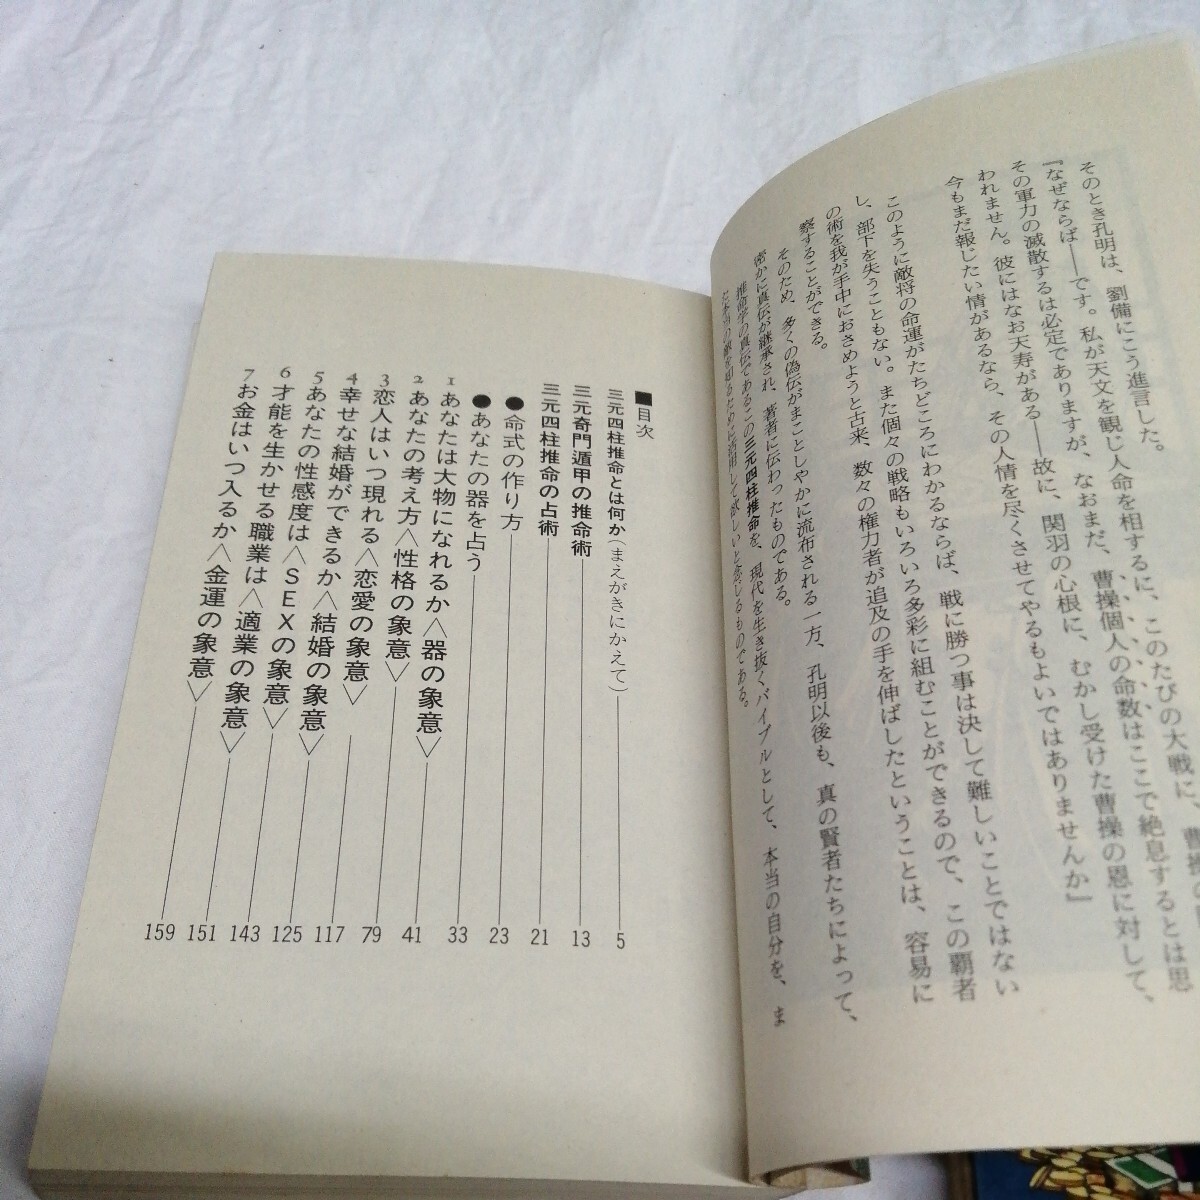 そのとき孔明は、劉備にこう進言した。
『なぜならば――です。私が天文を観じ人命を相するに、このたびの大戦に、曹操の
その軍力の滅散するは必定でありますが、なおまだ、曹操個人の命数はここで絶息するとは思
われません。彼にはなお天寿がある――故に、関羽の心根に、むかし受けた曹操の恩に対して、
今もまだ報じたい情があるなら、その人情を尽くさせてやるもよいではありませんか』
このように敵将の命運がたちどころにわかるならば、戦に勝つ事は決して難しいことではない
し、部下を失うこともない。また個々の戦略もいろいろ多彩に組むことができるので、この覇者
の術を我が手中におさめようと古来、数々の権力者が追及の手を伸ばしたということは、容易に
察することができる。
そのため、多くの偽伝がまことしやかに流布される一方、孔明以後も、真の賢者たちによって、
密かに真伝が継承され、著者に伝わったものである。
推命学の真伝であるこの三元四柱推命を、現代を生き抜くバイブルとして、本当の自分を、ま
た本当の敵を知るために活用して欲しいと念じるものである。
■目次
三元四柱推命とは何か（まえがきにかえて） 5
三元奇門遁甲の推命術 13
三元四柱推命の占術 21
●命式の作り方 23
●あなたの器を占う 33
1 あなたは大物になれるか〈器の象意〉 41
2 あなたの考え方〈性格の象意〉 79
3 恋人はいつ現れる〈恋愛の象意〉 117
4 幸せな結婚ができるか〈結婚の象意〉 125
5 あなたの性感度は〈SEXの象意〉 143
6 才能を生かせる職業は〈適業の象意〉 151
7 お金はいつ入るか〈金運の象意〉 159